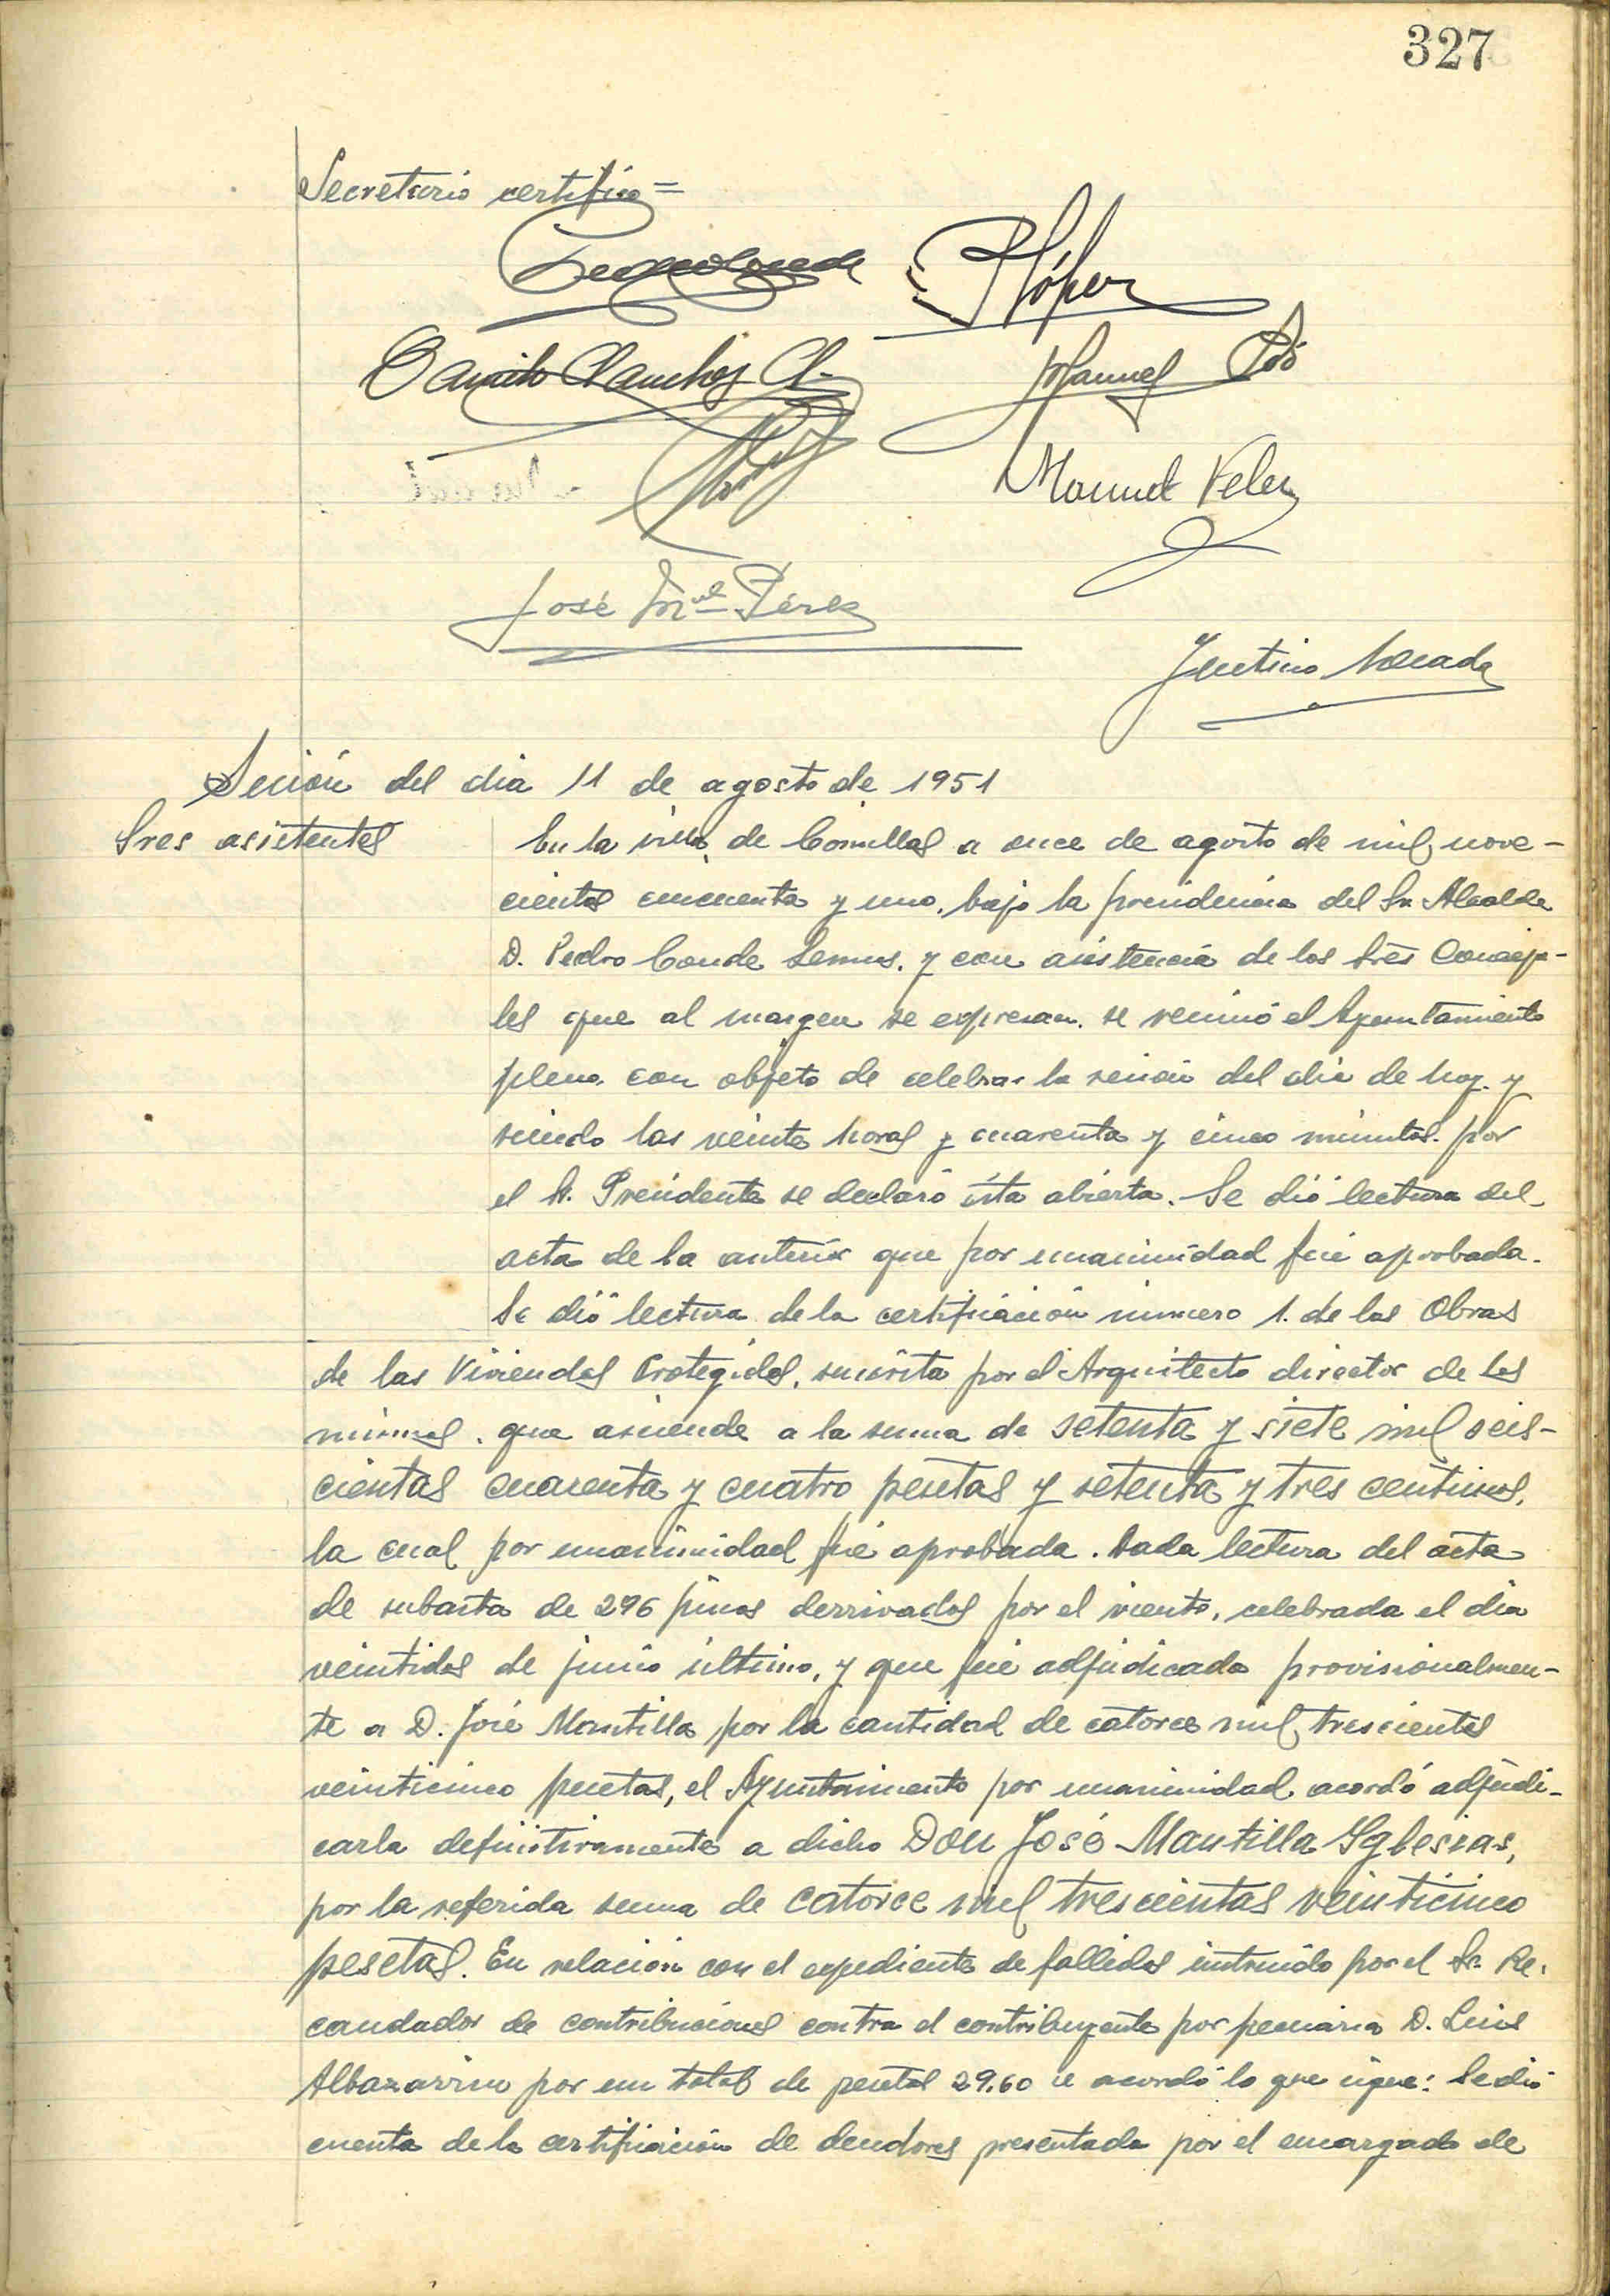 327
Secretario certifico=
P López
Camilo Sanchez A.
Manuel
Manuel Velez
José Ml Pérez
Sesión del dia 11 de agosto de 1951
Sres asistentes
En la villa de Comillas a once de agosto de mil nove-
cientos cincuenta y uno. bajo la presidencia del Sr. Alcalde
D. Pedro Conde Lemus. y con asistencia de los Sres Conceja-
les que al margen se expresan. se reunió el Ayuntamiento
pleno. con objeto de celebrar la sesión del dia de hoy. y
siendo las veinte horas y cuarenta y cinco minutos. por
el Sr. Presidente se declaró ésta abierta. Se dió lectura del
acta de la anterior que por unanimidad fué aprobada.
Se dió lectura de la certificación número 1. de las Obras
de las Viviendas Protegidas. suscrita por el Arquitecto director de las
mismas. que asciende a la suma de setenta y siete mil seis-
cientas cuarenta y cuatro pesetas y setenta y tres centimos,
la cual por unanimidad fué aprobada. Dada lectura del acta
de subasta de 296 pinos derrivados por el viento, celebrada el dia
veintidos de junio último, y que fué adjudicada provisionalmen-
te a D. José Mantilla por la cantidad de catorce mil trescientas
veinticinco pesetas, el Ayuntamiento por unanimidad acordó adjudi-
carla definitivamente a dicho Don José Mantilla Yglesias,
por la referida suma de catorce mil trescientas veinticinco
pesetas. En relación con el expediente de fallidos instruido por el Sr. Re-
caudador de contribuciones contra el contribuyente por pecuaria D. Luis
Albazarrin por un total de pesetas 29,60 se acordó lo que sigue: Se dió
cuenta de la certificación de deudores presentada por el encargado de